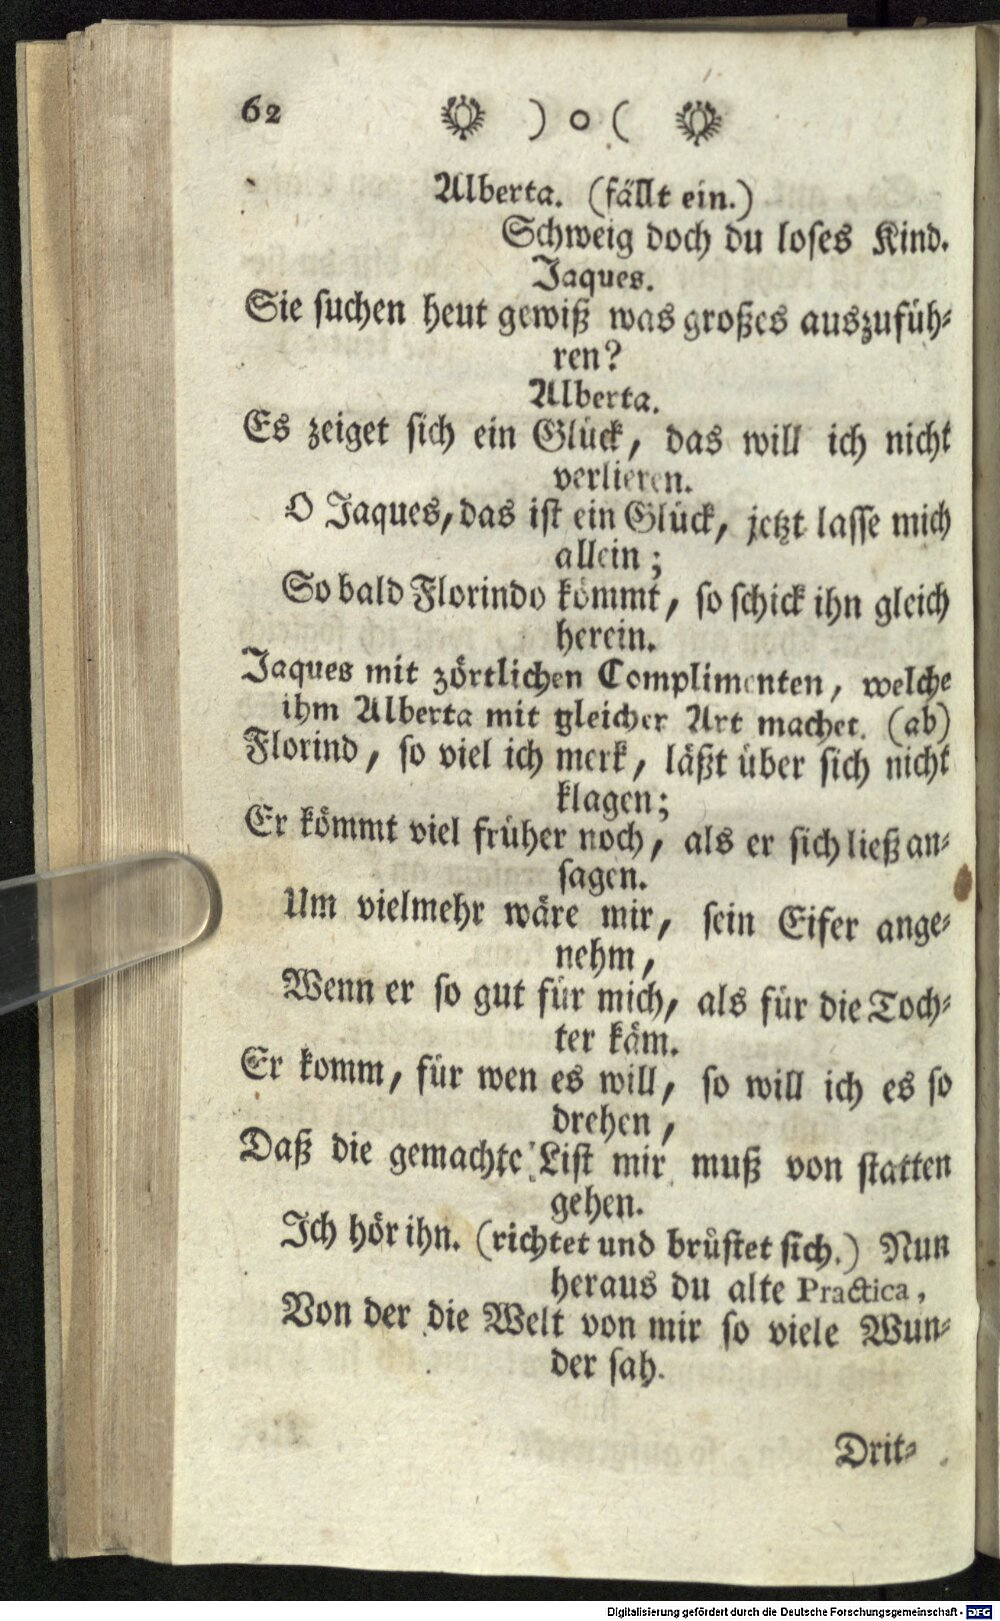 62 ) o (
Alberta. (fällt ein.)
Schweig doch du loses Kind.
Jaques.
Sie suchen heut gewiß was großes auszufüh-
ren?
Alberta.
Es zeiget sich ein Glück, das will ich nicht
verlieren.
O Jaques, das ist ein Glück, jetzt lasse mich
allein;
So bald Florindo kömmt, so schick ihn gleich
herein.
Jaques mit zörtlichen Complimenten, welche
ihm Alberta mit gleicher Art machet. (ab)
Florind, so viel ich merk, läßt über sich nicht
klagen;
Er kömmt viel früher noch, als er sich ließ an-
sagen.
Um vielmehr wäre mir, sein Eifer ange-
nehm,
Wenn er so gut für mich, als für die Toch-
ter käm.
Er komm, für wen es will, so will ich es so
drehen,
Daß die gemachte List mir muß von statten
gehen.
Ich hör ihn. (richtet und brüstet sich.) Nun
heraus du alte Practica,
Von der die Welt von mir so viele Wun-
der sah.
Drit-
Digitalisierung gefördert durch die Deutsche Forschungsgemeinschaft - DFG